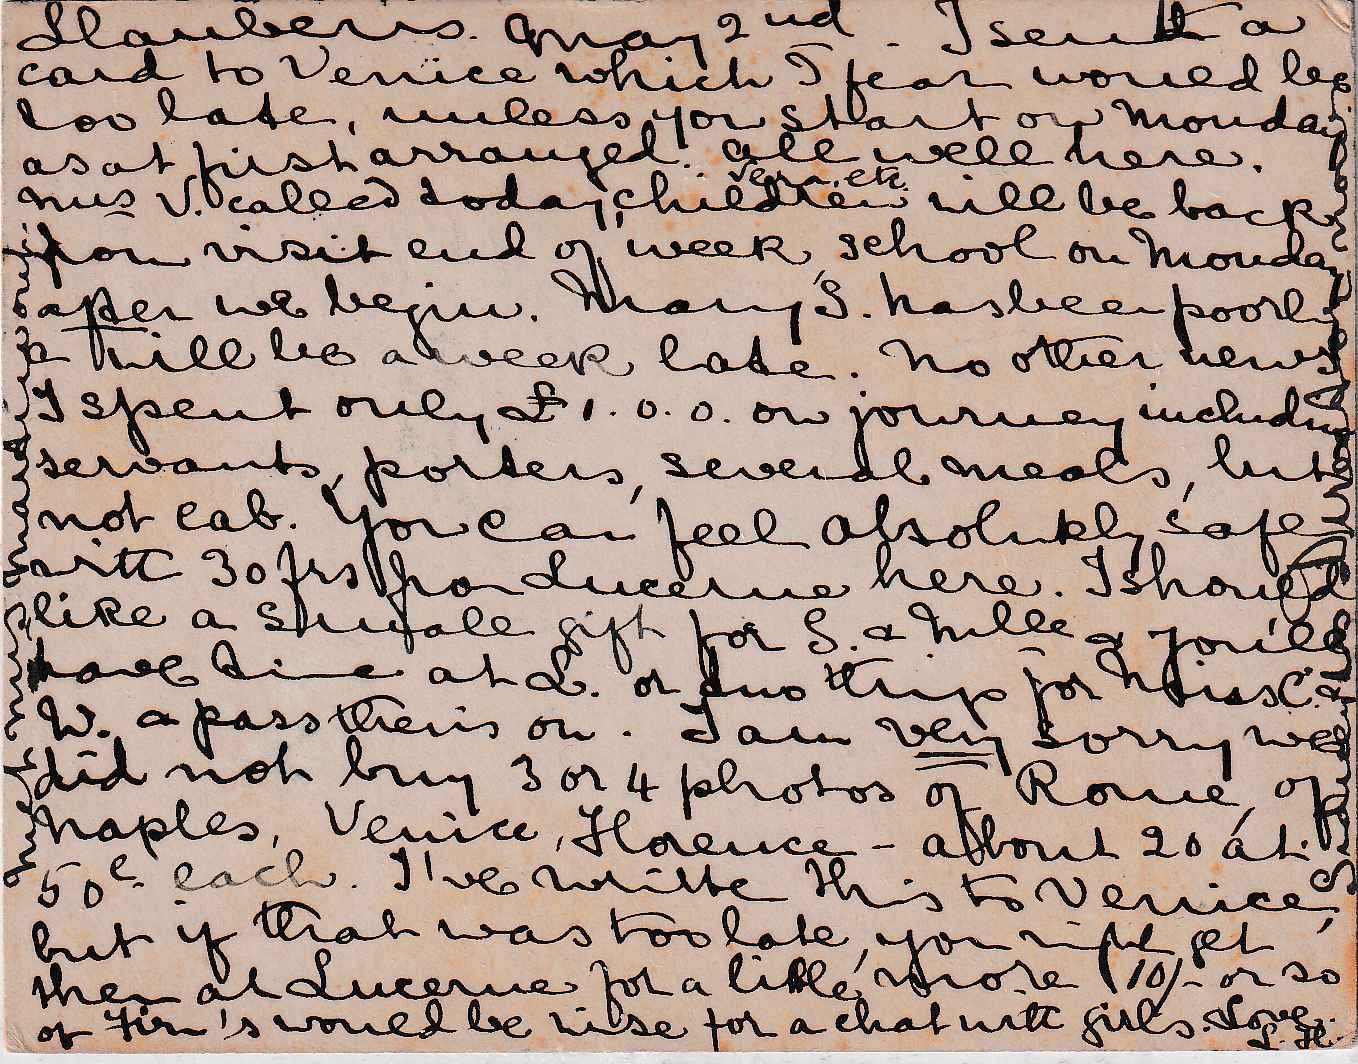 Llanberis. May 2nd. I sent a
card to Venice which I fear would be
too late, unless you start on Monday
as at first arranged. All well here.
Mrs V. called today, children Vera, etc. will be back
from visit end of week, school on Monday
after we begin. Mary S. has been poorly
& will be a week late. No other news
I spent only £1.0.0. on journey including
servants, porters, several meals, but
not cab. You can feel absolutely safe
with 30 frs from Lucerne here. I should
like a small gift for S. & Mlle & you'll
have time at L. or two things for Miss C. &
W. & pass theirs on. I am very sorry we
did not buy 3 or 4 photos of Rome, of
Naples, Venice, Florence - about 20 at
50c each. I've written this to Venice,
but if that was too late, you might get
them at Lucerne for a little more (10/- or so
of Firm's would be nice for a chat with girls. Love.
L. H.